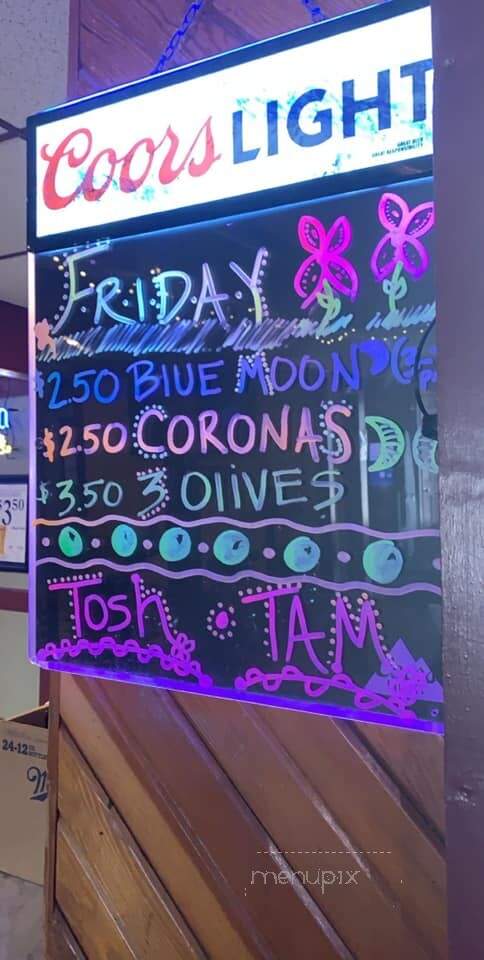 Coors LIGHT
GREAT BEER
GREAT RESPONSIBILITY
FRIDAY
$2.50 BlUE MOON
$2.50 CORONAS
$3.50 3 OlIVES
Tosh • TAM
$3.50
24-12
menupix